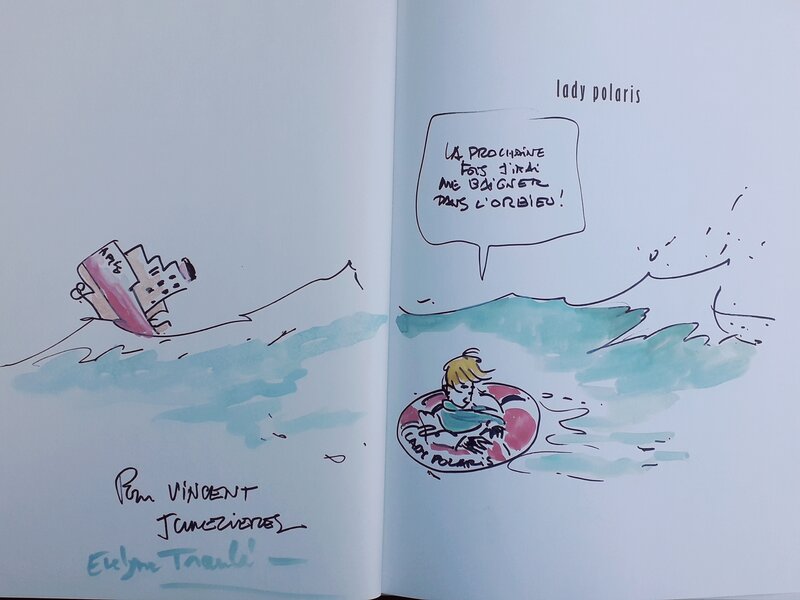 lady polaris
LA PROCHAINE
FOIS J'IRAI
ME BAIGNER
DANS L'ORBIEU!
LADY POLARIS
Pour VINCENT
Evelyne Tranlé